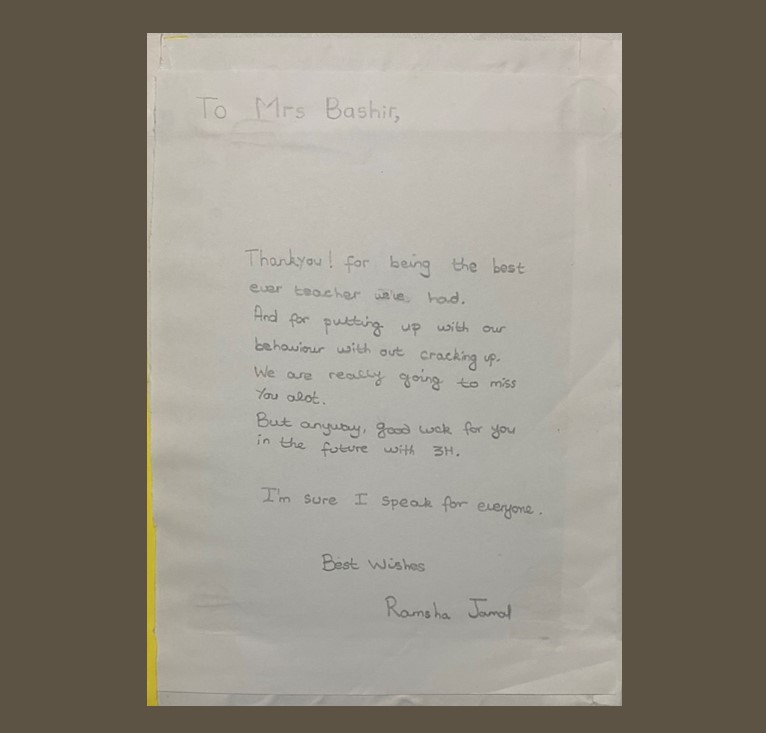 To Mrs Bashir,
Thankyou! for being the best
ever teacher we've had.
And for putting up with our
behaviour with out cracking up.
We are really going to miss
You alot.
But anyway, good luck for you
in the future with 3H.
I'm sure I speak for everyone.
Best Wishes
Ramsha Jamal